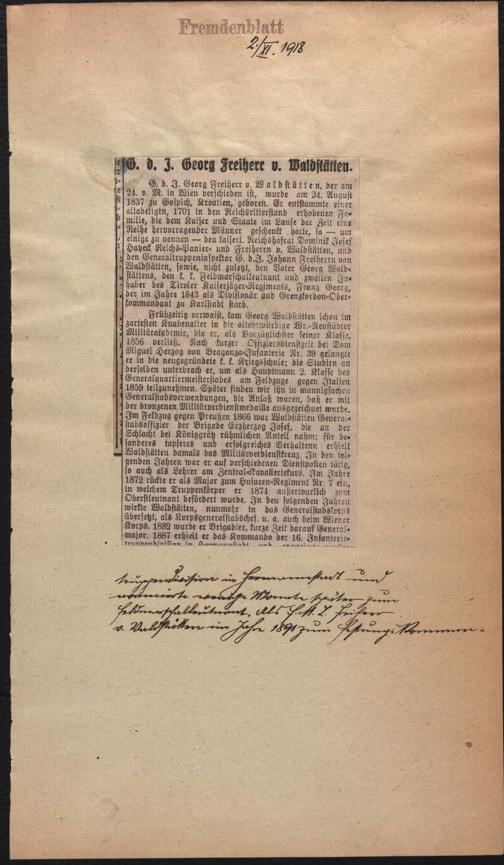 Fremdenblatt
2./XI. 1918
G. d. J. Georg Freiherr v. Waldstätten.
G. d. J. Georg Freiherr v. Waldstätten, der am
24. v. M. in Wien verschieden ist, wurde am 24. August
1837 zu Gospich, Kroatien, geboren. Er entstammte einer
altadeligen, 1701 in den Reichsritterstand erhobenen Fa-
milie, die dem Kaiser und Staate im Laufe der Zeit eine
Reihe hervorragender Männer geschenkt hatte, so — um
einige zu nennen — den kaiserl. Reichshofrat Dominik Josef
Hayek Reichs-Panier- und Freiherrn v. Waldstätten, und
den Generaltruppeninspektor G. d. J. Johann Freiherrn von
Waldstätten, sowie, nicht zuletzt, den Vater Georg Wald-
stättens, den k. k. Feldmarschalleutnant und zweiten In-
haber des Tiroler Kaiserjäger-Regiments, Franz Georg,
der im Jahre 1843 als Divisionär und Grenzkordon-Ober-
kommandant zu Karlstadt starb.
Frühzeitig verwaist, kam Georg Waldstätten schon im
zartesten Knabenalter in die altehrwürdige Wr.-Neustädter
Militärakademie, die er als Vorzüglichster seiner Klasse,
1856 verließ. Nach kurzer Offiziersdienstzeit bei Dom
Miguel Herzog von Braganza-Infanterie Nr. 39 gelangte
er in die neugegründete k. k. Kriegsschule; die Studien an
derselben unterbrach er, um als Hauptmann 2. Klasse des
Generalquartiermeisterstabes am Feldzuge gegen Italien
1859 teilzunehmen. Später finden wir ihn in mannigfachen
Generalstabsverwendungen, die Anlaß waren, daß er mit
der bronzenen Militärverdienstmedaille ausgezeichnet wurde.
Im Feldzug gegen Preußen 1866 war Waldstätten General-
stabsoffizier der Brigade Erzherzog Josef, die an der
Schlacht bei Königgrätz rühmlichen Anteil nahm; für be-
sonderes tapferes und erfolgreiches Verhalten erhielt
Waldstätten damals das Militärverdienstkreuz. In den fol-
genden Jahren war er auf verschiedenen Dienstposten tätig,
so auch als Lehrer am Zentral-Kavalleriekurs. Im Jahre
1872 rückte er als Major zum Husaren-Regiment Nr. 7 ein,
in welchem Truppenkörper er 1874 außertourlich zum
Oberstleutnant befördert wurde. In den folgenden Jahren
wirkte Waldstätten, nunmehr in das Generalstabskorps
übersetzt, als Korpsgeneralstabschef u. a. auch beim Wiener
Korps. 1882 wurde er Brigadier, kurze Zeit darauf General-
major. 1887 erhielt er das Kommando der 16. Infanterie-
truppendivision in Hermannstadt und
truppendivision in Hermannstadt und
avancierte wenige Monate später zum
Feldmarschalleutnant. Als F. M. L. Freiherr
v. Waldstätten im Jahre 1891 zum Festungskomman-